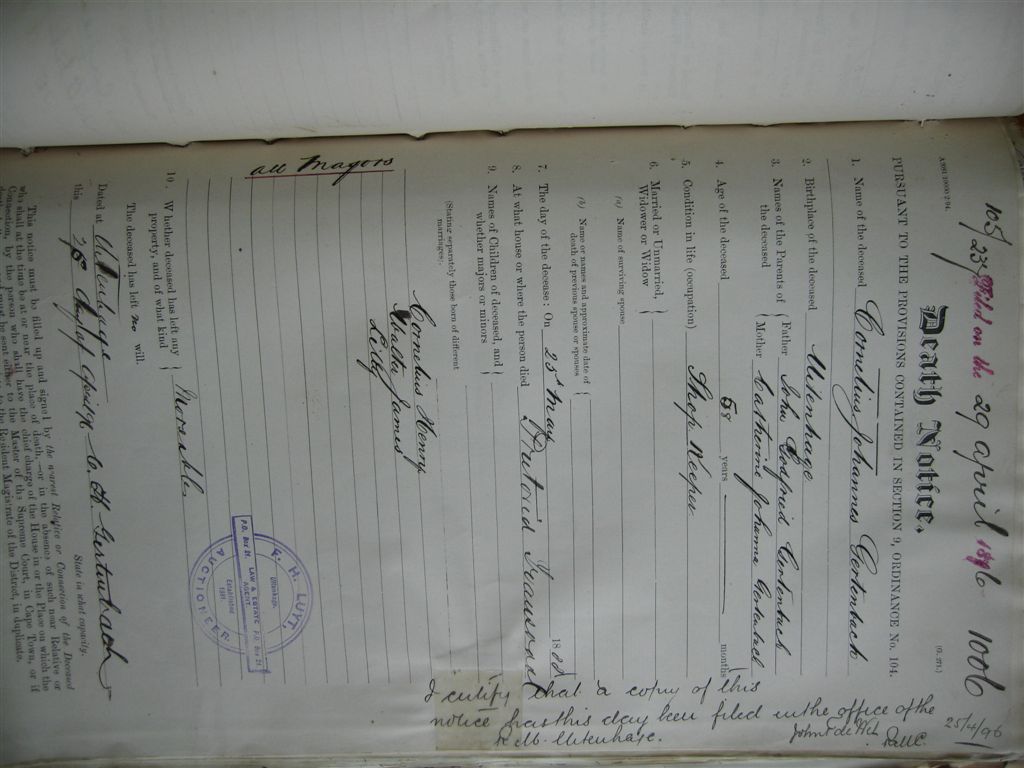 105/23 Filed on the 29 april 1896 1006
Death Notice.
(G. 371.)
PURSUANT TO THE PROVISIONS CONTAINED IN SECTION 9, ORDINANCE No. 104.
1. Name of the deceased Cornelius Johannes Gertenbach
2. Birthplace of the deceased Uitenhage
3. Names of the Parents of the deceased { Father John Gertenbach
Mother Catherine Johanna Gertenbach
4. Age of the deceased 58 years months
5. Condition in life (occupation) Shop Keeper
6. Married or Unmarried, Widower or Widow {
(a) Name of surviving spouse
(b) Name or names and approximate date of death of previous spouse or spouses {
7. The day of the decease: On 23rd May 188
8. At what house or where the person died Transvaal
9. Names of Children of deceased, and whether majors or minors {
(Stating separately those born of different marriages).
Cornelius Henry
James
Lily
all Magors
10. Whether deceased has left any property, and of what kind } Movable
The deceased has left no will.
Dated at Uitenhage
this C. H. Gertenbach
State in what capacity.
This notice must be filled up and signed by the nearest Relative or Connection of the Deceased
who shall at the time be at or near the place of death,—or in the absence of such near Relative or
Connection, by the person who shall have the chief charge of the House in or the Place on which the
must be sent either to the Master of the Supreme Court, in Cape Town, or if
to the Resident Magistrate of the District, in duplicate.
H. LUYT.
Uitenhage.
P.O. Box 21. LAW & ESTATE AGENT. P.O. Box 21
Established
AUCTIONEER
I certify that a copy of this
notice has this day been filed in the office of the
R.M. Uitenhage.
25/4/96